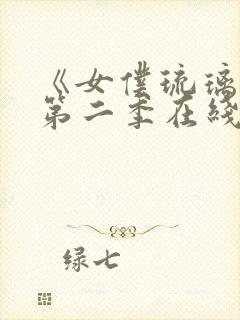 《女僕琉璃
第二季在綫
绿七